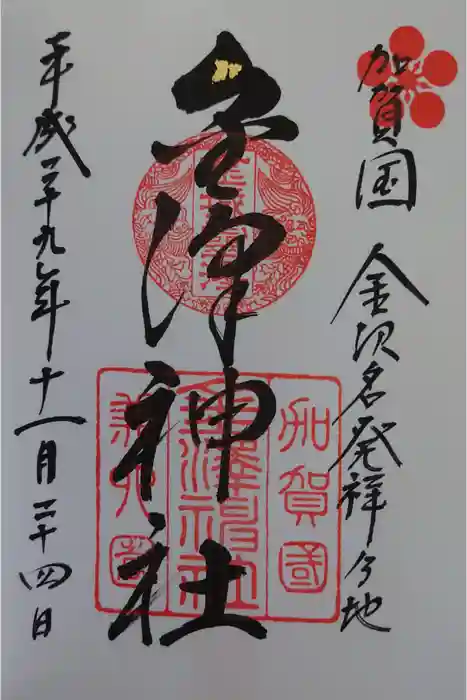 加賀国
金沢名発祥之地
金澤神社
平成二十九年十一月二十四日
加賀國
金澤神社
兼六園